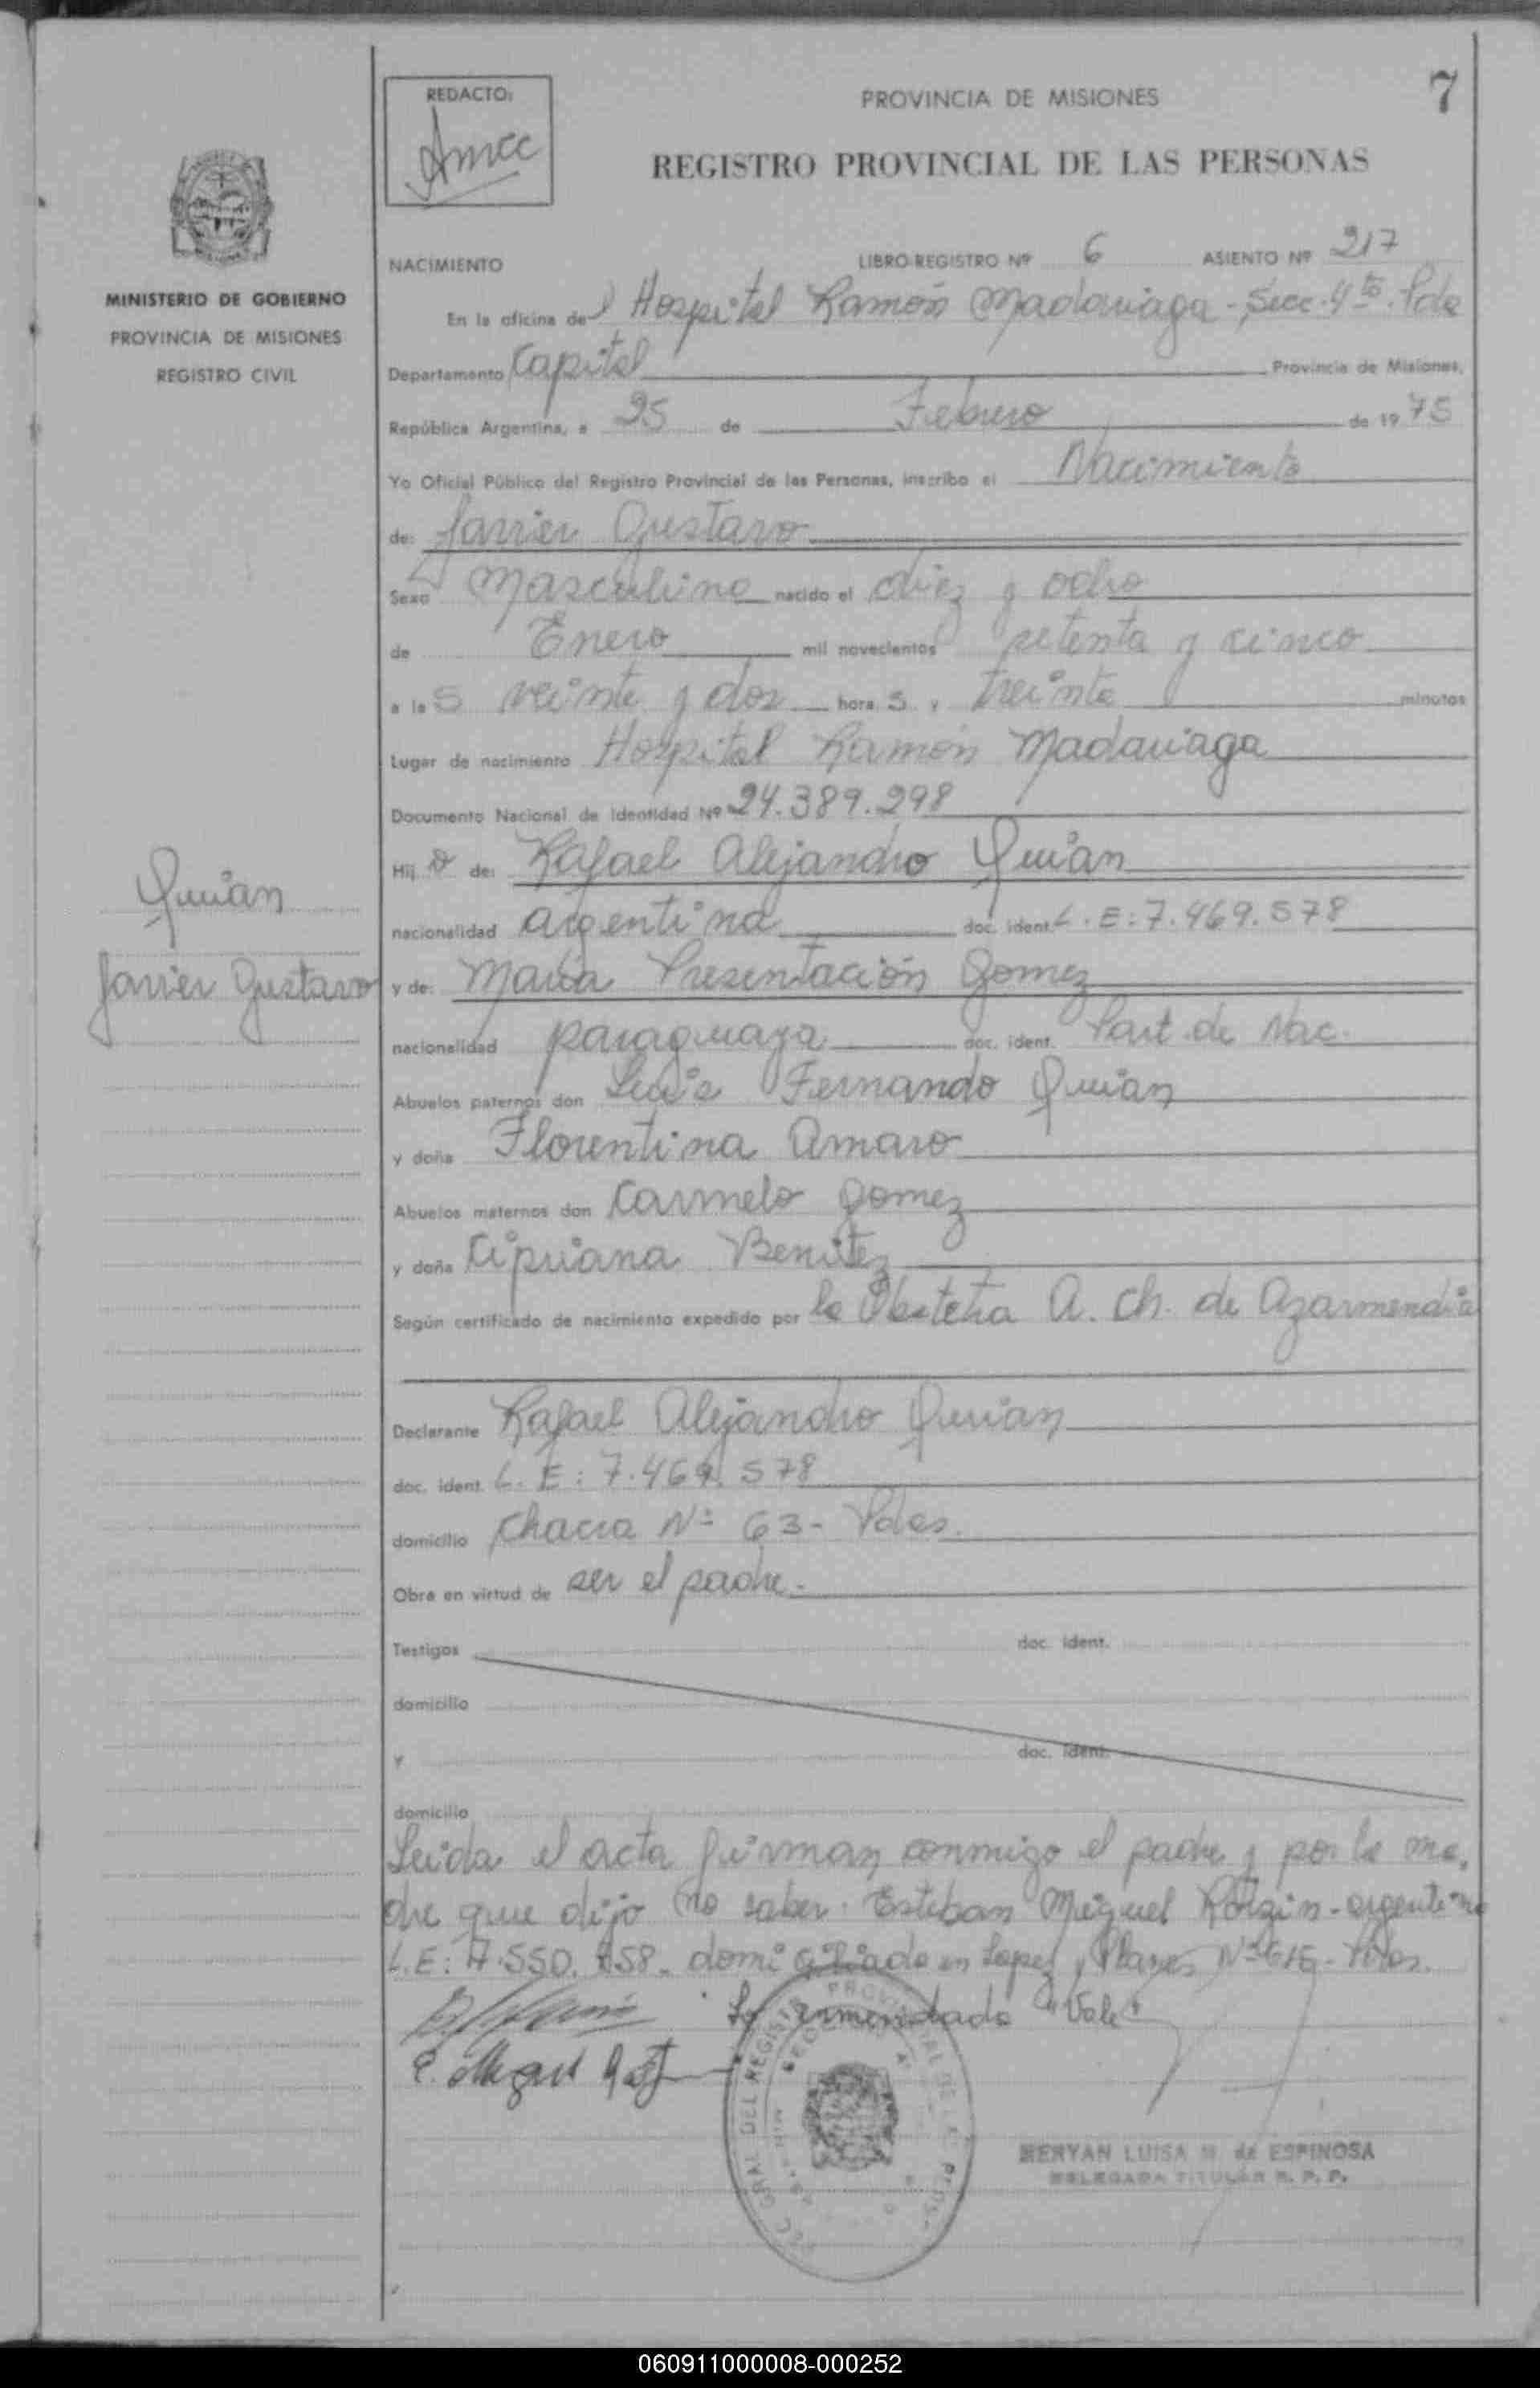 7
REDACTO:
PROVINCIA DE MISIONES
REGISTRO PROVINCIAL DE LAS PERSONAS
MINISTERIO DE GOBIERNO
PROVINCIA DE MISIONES
REGISTRO CIVIL
NACIMIENTO LIBRO-REGISTRO Nº 6 ASIENTO Nº 217
En la oficina del Hospital Ramón Madariaga - Secc. 4ta. Pdas
Departamento Capital Provincia de Misiones,
República Argentina, a 25 de Febrero de 1975
Yo Oficial Público del Registro Provincial de las Personas, inscribo el Nacimiento
de: Javier Gustavo
Sexo Masculino nacido el diez y ocho
de Enero mil novecientos setenta y cinco
a las veinte y dos horas y treinta minutos
Lugar de nacimiento Hospital Ramón Madariaga
Documento Nacional de Identidad Nº 24.389.298
Hijo de: Rafael Alejandro
nacionalidad argentina doc. ident. L.E: 7.469.578
Javier Gustavo
y de: Maria Presentación Gomez
nacionalidad paraguaya doc. ident. Part. de Nac.
Abuelos paternos don Luis Fernando
y doña Florentina Amaro
Abuelos maternos don Carmelo Gomez
y doña Cipriana Benitez
Según certificado de nacimiento expedido por la Obstetra A. Ch. de Azarmendia
Declarante Rafael Alejandro
doc. ident. L.E: 7.469.578
domicilio Chacra Nº 63- Pdas.
Obra en virtud de ser el padre.
Testigos doc. ident.
domicilio
y doc. ident.
domicilio
Leida el acta firman conmigo el padre y por la ma,
dre que dijo no saber. Esteban Miguel argentino
L.E: domiciliado en Lopez y Planes Pdas.
enmendado "Vale"
MERYAN LUISA M. de ESPINOSA
DELEGADA TITULAR R. P. P.
060911000008-000252